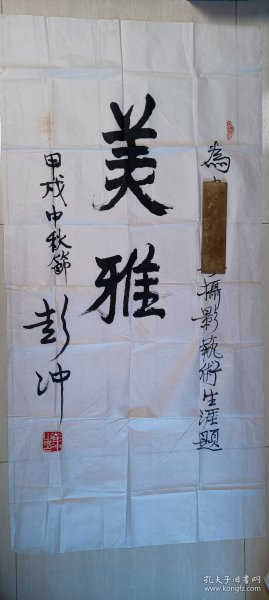 為
攝影藝術生涯題
美雅
甲戌中秋節
彭冲
孔夫子旧书网
www.kongfz.com